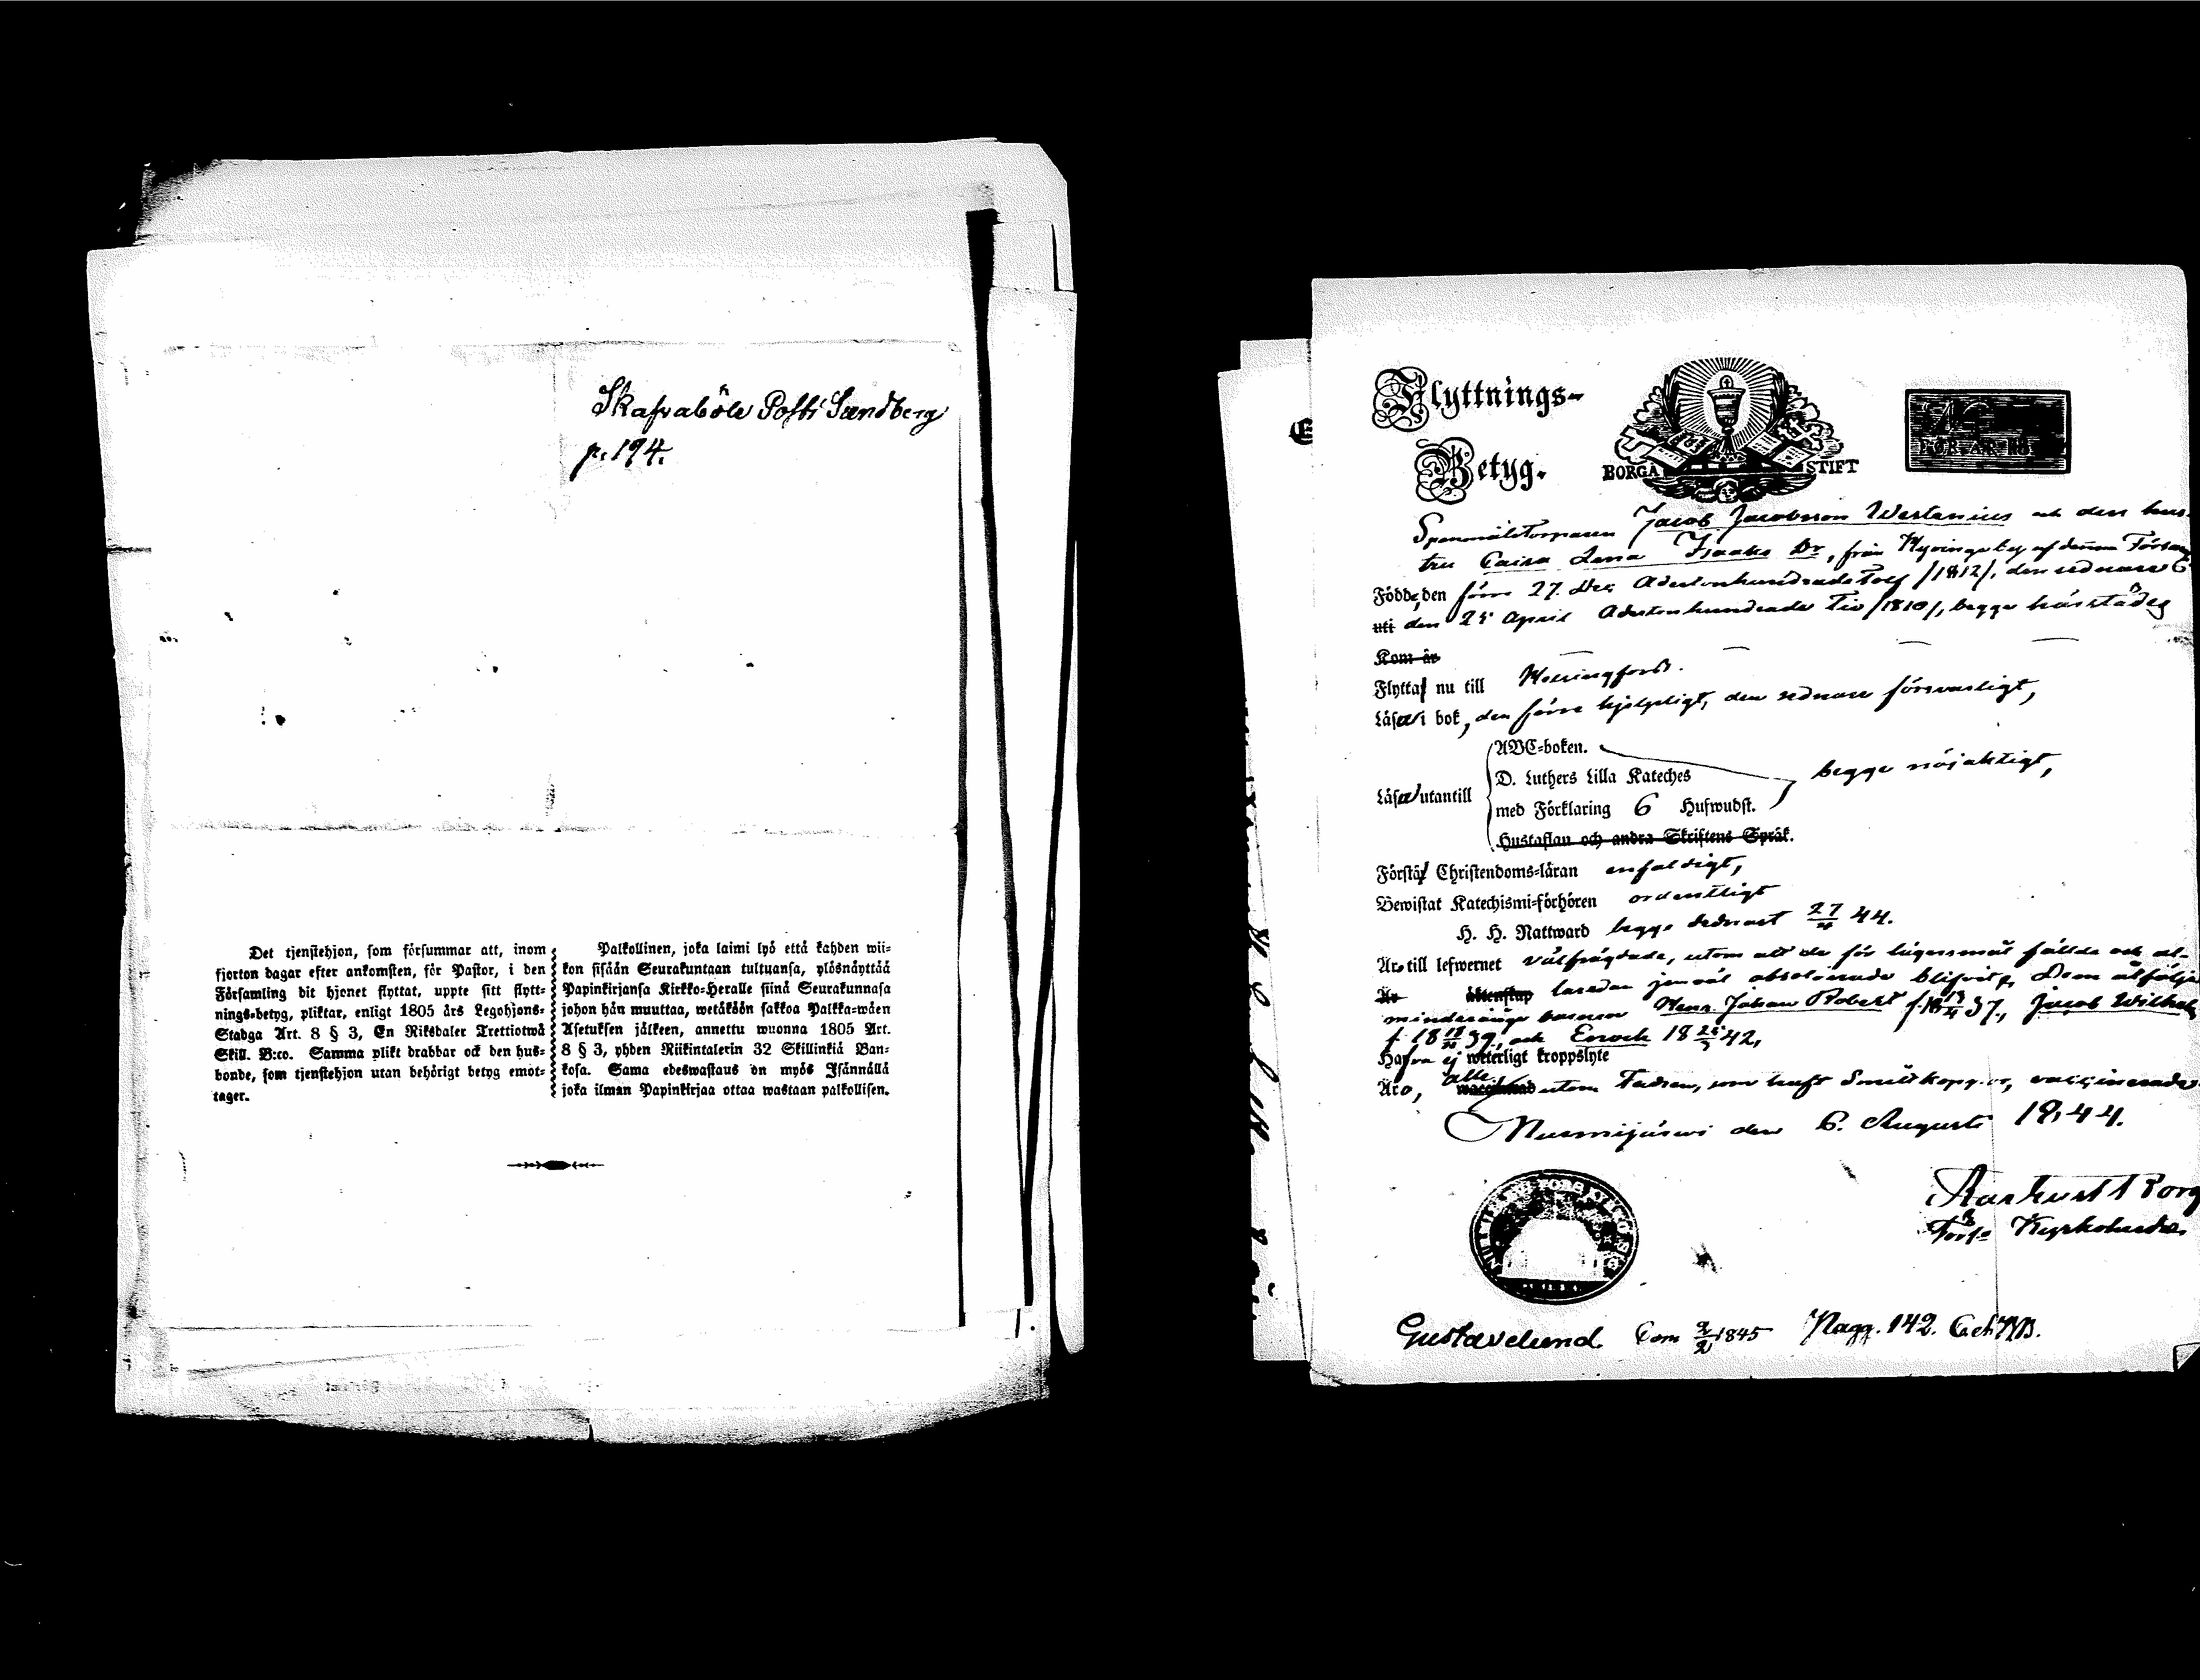 Skafvaböle Posti Sandberg
p. 194.
Det tjenstehjon, som försummar att, inom
fjorton dagar efter ankomsten, för Pastor, i den
Församling dit hjonet flyttat, uppte sitt flytt-
nings-betyg, pliktar, enligt 1805 års Legohjons-
Stadga Art. 8 § 3, En Riksdaler Trettiotwå
Skill. B:co. Samma plikt drabbar ock den hus-
bonde, som tjenstehjon utan behörigt betyg emot-
tager.
Palkollinen, joka laimi lyö että kahden wii-
kon sisään Seurakuntaan tultuansa, ylösnäyttää
Papinkirjansa Kirkko-Heralle siinä Seurakunnasa
johon hän muuttaa, wetäköön sakkoa Palkka-wäen
Asetuksen jälkeen, annettu wuonna 1805 Art.
8 § 3, yhden Riikintalerin 32 Skillinkiä Ban-
kosa. Sama edeswastaus on myös Isännällä
joka ilman Papinkirjaa ottaa wastaan palkollisen.
Flyttnings-
Betyg.
BORGÅ STIFT
FÖR ÅR 18
Jacob Jacobsson Westenius och dess hus-
tru Caisa Lena Isaks Dr, från Hyvingeby af denna Försam
Födde, den förre 27. Dec Adertonhundrade Tolf /1812/, den sednare
uti den 25 April Adertonhundrade Tio /1810/, begge härstädes
Kom år
Flytta nu till Helsingfors.
Läsa i bok, den förre hjelpligt, den sednare försvarligt,
ABC-boken.
D. Luthers Lilla Kateches
Läsa utantill
med Förklaring 6 Hufwudst.
begge nöjaktigt,
Hustaflan och andra Skriftens Språk.
Förstå Christendoms-läran enfaldigt,
Bewistat Katechismi-förhören ordentligt
H. H. Nattward begge sednast 27 44.
Äro till lefwernet välfrägdade, utom att de för lägersmål fällde och
Är äktenskap absolverade blifvit, Dem åtfölja
minderåriga barnen Johan Robert f 18 37, Jacob Wilhelm
f. 18 39, och Enoch 18 42,
Hafva ej weterligt kroppslyte
Äro, alla utom Fadren, som haft Smittkoppor, vaccinerade.
Nurmijärvi den 6. Augusti 1844.
Kyrkoherde
Gustavelund Kom 2/2 1845 Pagg. 142.